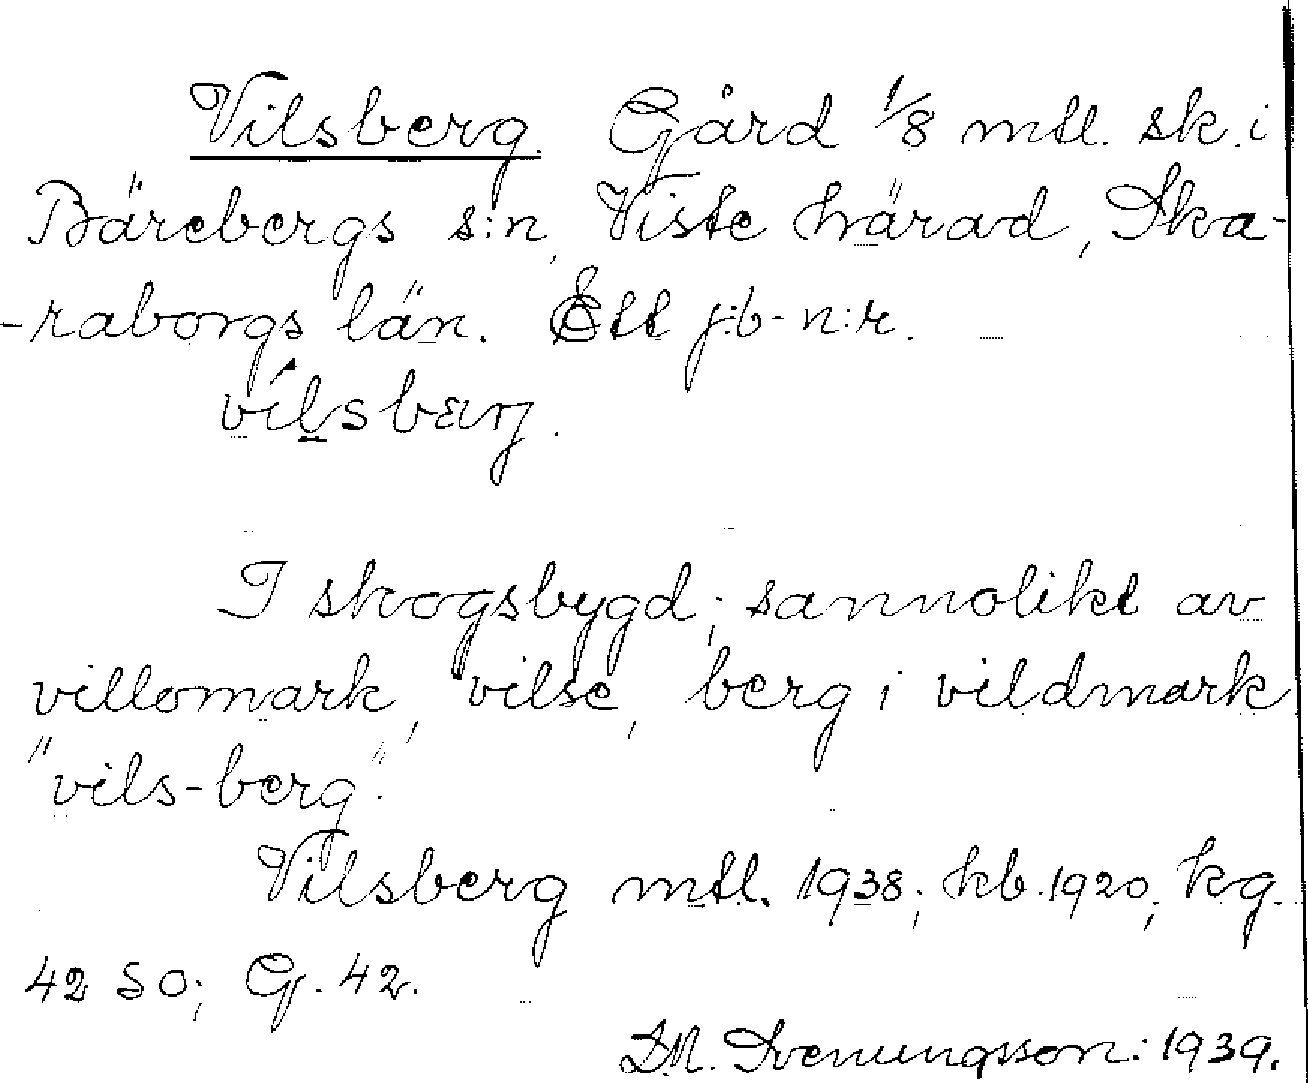 Vilsberg. Gård 1/8 mtl. sk. i
Bärebergs s:n, Viste härad, Ska-
-raborgs län. Ett j:b-n:r.
vílsbærj.
I skogsbygd; sannolikt av
villomark, vilse, berg i vildmark
"vils-berg".
Vilsberg mtl. 1938; kb. 1920; kg.
42 SO; G. 42.
Svenungsson: 1939.